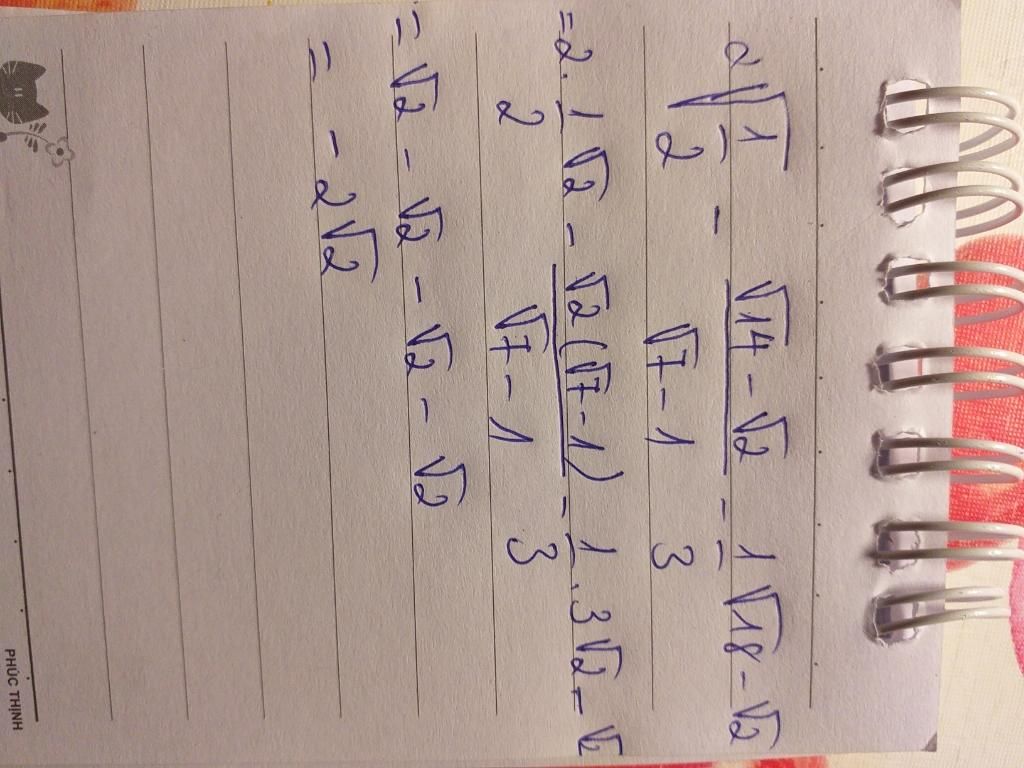 2√(1/2) - (√14 - √2)/(√7 - 1) - 1/3 √18 - √2
= 2 . 1/2 √2 - √2(√7 - 1)/(√7 - 1) - 1/3 . 3√2 - √2
= √2 - √2 - √2 - √2
= - 2√2
PHÚC THỊNH